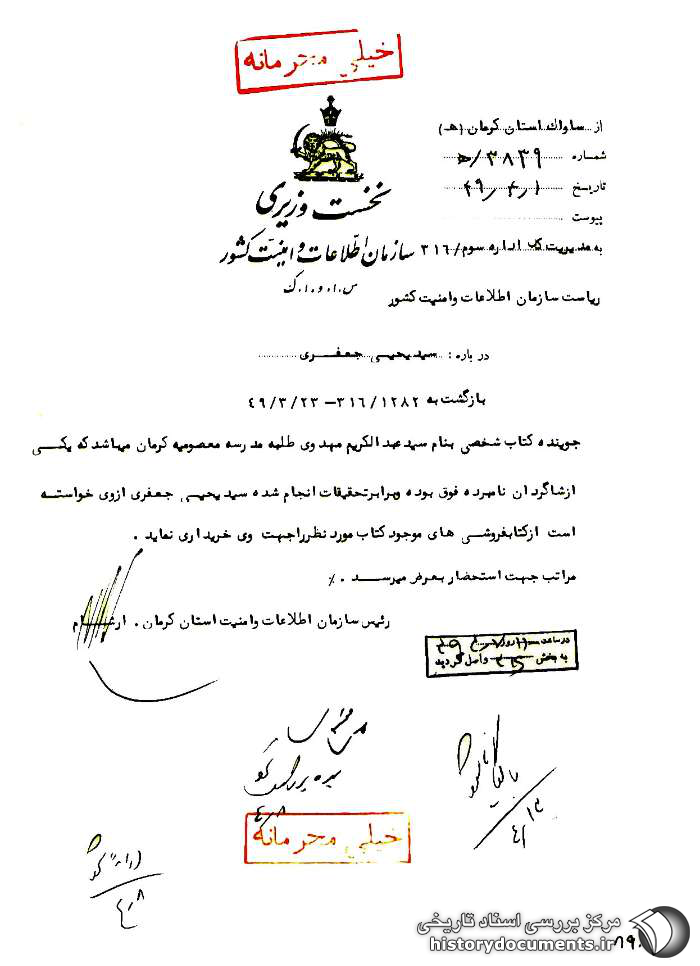 خیلی محرمانه
از ساواك استان كرمان (هـ)
شماره ۳۸۳۹/ﻫ
تاریخ ۴۹/۴/۱
پیوست
نخست وزیری
سازمان اطلاعات و امنیت کشور
س.ا.و.ا.ک
به مدیریت کل اداره سوم/ ۳۱۶
ریاست سازمان اطلاعات وامنیت کشور
درباره : سید یحیی جعفری
بازگشت به ۳۱۶/۱۲۸۲ – ۴۹/۳/۲۳
جوینده کتاب شخصی بنام سید عبدالکریم مهدوی طلبه مدرسه معصومیه کرمان میباشد که یکی
ازشاگردان نامبرده فوق بوده وبرابرتحقیقات انجام شده سید یحیی جعفری ازوی خواسته
است ازکتابفروشی های موجود کتاب مورد نظرراجهت وی خریداری نماید .
مراتب جهت استحضار بعرض میرسد . ٪
رئیس سازمان اطلاعات وامنیت استان کرمان .
در ساعت روز
به بخش ۳۱۶ واصل گردید
۴/۸
۴/۱۳
خیلی محرمانه
۴/۸
مرکز بررسی اسناد تاریخی
historydocuments.ir